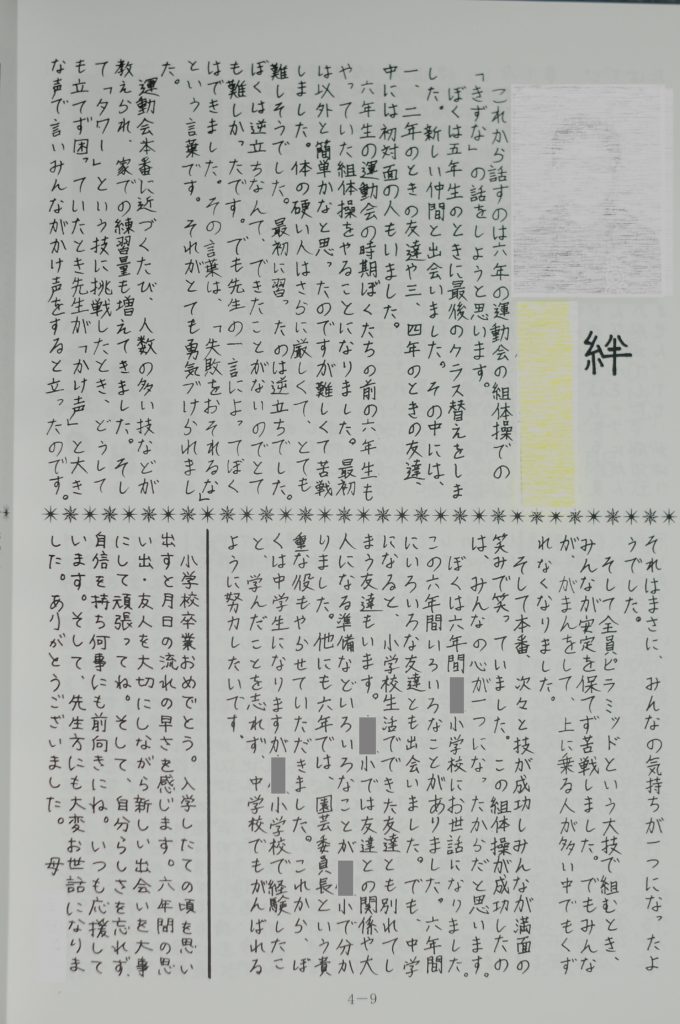 絆
これから話すのは六年の運動会の組体操での
「きずな」の話をしようと思います。
ぼくは五年生のときに最後のクラス替えをしま
した。新しい仲間と出会いました。その中には、
一、二年のときの友達や三、四年のときの友達、
中には初対面の人もいました。
六年生の運動会の時期ぼくたちの前の六年生も
やっていた組体操をやることになりました。最初
は以外と簡単かなと思ったのですが難しくて苦戦
しました。体の硬い人はさらに厳しくて、とても
難しそうでした。最初に習ったのは逆立ちでした。
ぼくは逆立ちなんて、できたことがないのでとて
も難しかったです。でも先生の一言によってぼく
はできました。その言葉は、「失敗をおそれるな」
という言葉です。それがとても勇気づけられまし
た。
運動会本番に近づくたび、人数の多い技などが
教えられ、家での練習量も増えてきました。そし
て「タワー」という技に挑戦したとき、どうして
も立てず困っていたとき先生が「かけ声」と大き
な声で言いみんながかけ声をすると立ったのです。
それはまさに、みんなの気持ちが一つになったよ
うでした。
そして全員ピラミッドという大技で組むとき、
みんなが安定を保てず苦戦しました。でもみんな
が、がまんをして、上に乗る人が多い中でもくず
れなくなりました。
そして本番、次々と技が成功しみんなが満面の
笑みで笑っていました。この組体操が成功したの
は、みんなの心が一つになったからだと思います。
ぼくは六年間小学校にお世話になりました。
この六年間いろいろなことがありました。六年間
にいろいろな友達とも出会いました。でも、中学
になると、小学校生活でできた友達とも別れてし
まう友達もいます。小では友達との関係や大
人になる準備などいろいろなことが小で分か
りました。他にも六年では、園芸委員長という貴
重な役もやらせていただきました。これから、ぼ
くは中学生になりますが小学校で経験したこ
と、学んだことを忘れず、中学校でもがんばれる
ように努力したいです。
小学校卒業おめでとう。入学したての頃を思い
出すと月日の流れの早さを感じます。六年間の思
い出・友人を大切にしながら新しい出会いを大事
にして頑張ってね。そして、自分らしさを忘れず、
自信を持ち何事にも前向きにね。いつも応援して
います。そして、先生方にも大変お世話になりま
した。ありがとうございました。　母
4－9